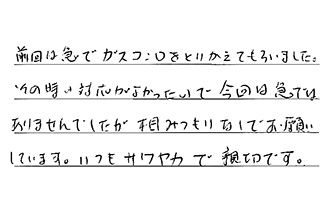 前回は急でガスコンロをとりかえてもらいました。
その時い対応がよかったいで今回は急では
ありませんでしたが相みつもりなしでお願い
しています。いつもサワヤカで親切です。